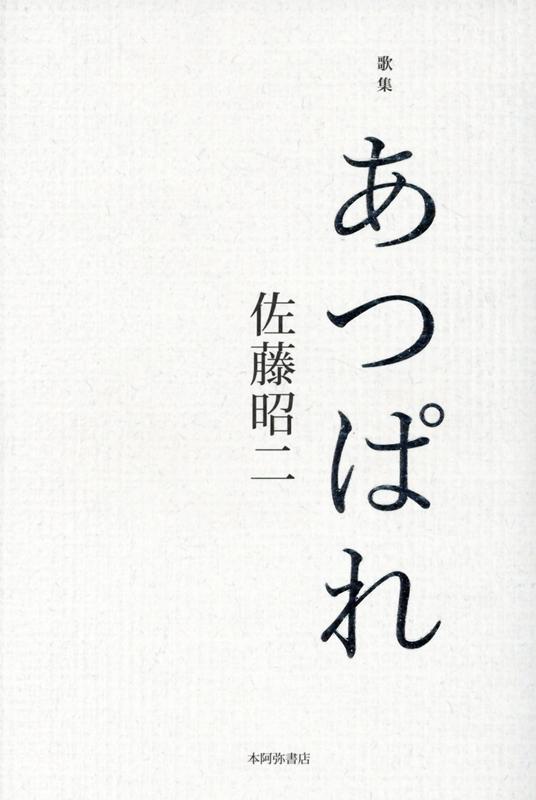 歌集
あつぱれ
佐藤昭二
本阿弥書店